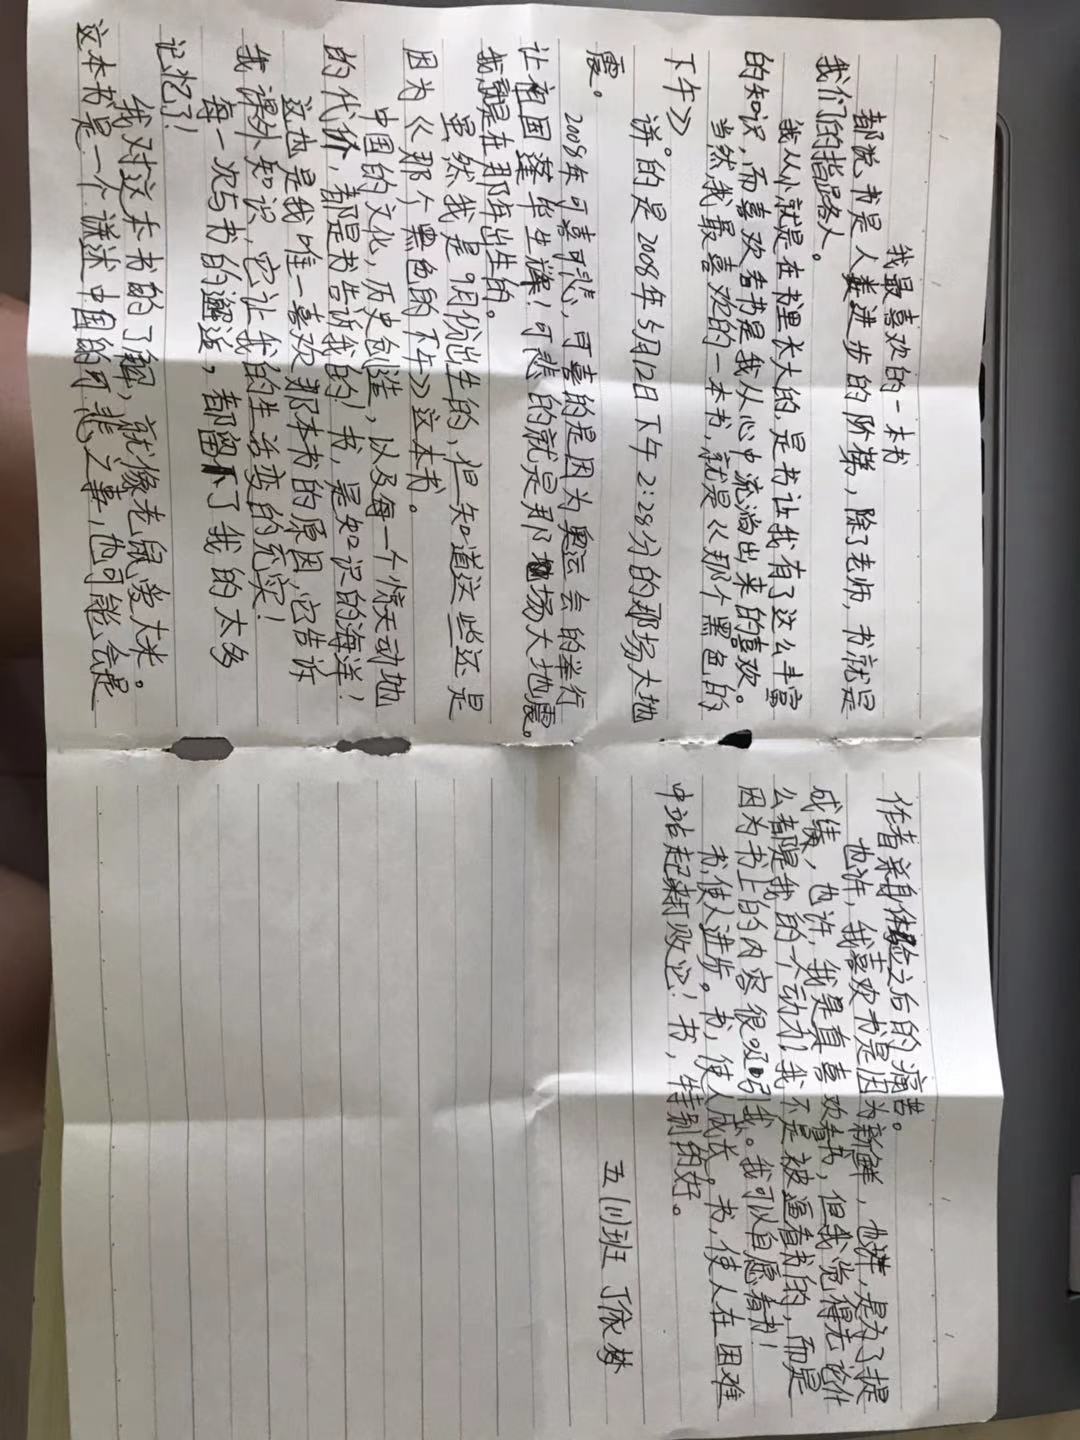 我最喜欢的一本书
都说书是人类进步的阶梯，除了老师，书就是
我们的指路人。
我从小就是在书里长大的，是书让我有了这么丰富
的知识，而喜欢看书是我从心中流淌出来的喜欢。
当然，我最喜欢的一本书，就是《那个黑色的
下午》。
讲的是2008年5月12日下午2:28分的那场大地
震。
2008年可喜可悲，可喜的是因为奥运会的举行
让祖国蓬荜生辉！可悲的就是那场大地震。
我就是在那年出生的。
虽然我是9月份出生的，但知道这些还是
因为《那个黑色的下午》这本书。
中国的文化，历史创造，以及每一个惊天动地
的代价，都是书告诉我的！书，是知识的海洋！
这也是我唯一喜欢那本书的原因，它告诉
我课外知识，它让我的生活变的充实！
每一次与书的邂逅，都留下了我的太多
记忆了！
我对这本书的了解，就像老鼠爱大米。
这本书是一个讲述中国的可悲之事，也可能会是
作者亲身体验之后的痛苦。
也许，我喜欢书是因为新鲜，也许，是为了提
成绩，也许，我是真喜欢看书，但我觉得无论什
么都是我的一个动力！我不是被逼看书的，而是
因为书上的内容很吸引我。我可以自愿看书！
书，使人进步。书，使人成长。书，使人在困难
中站起来打败它！书，特别的好。
五(1)班 丁依梦